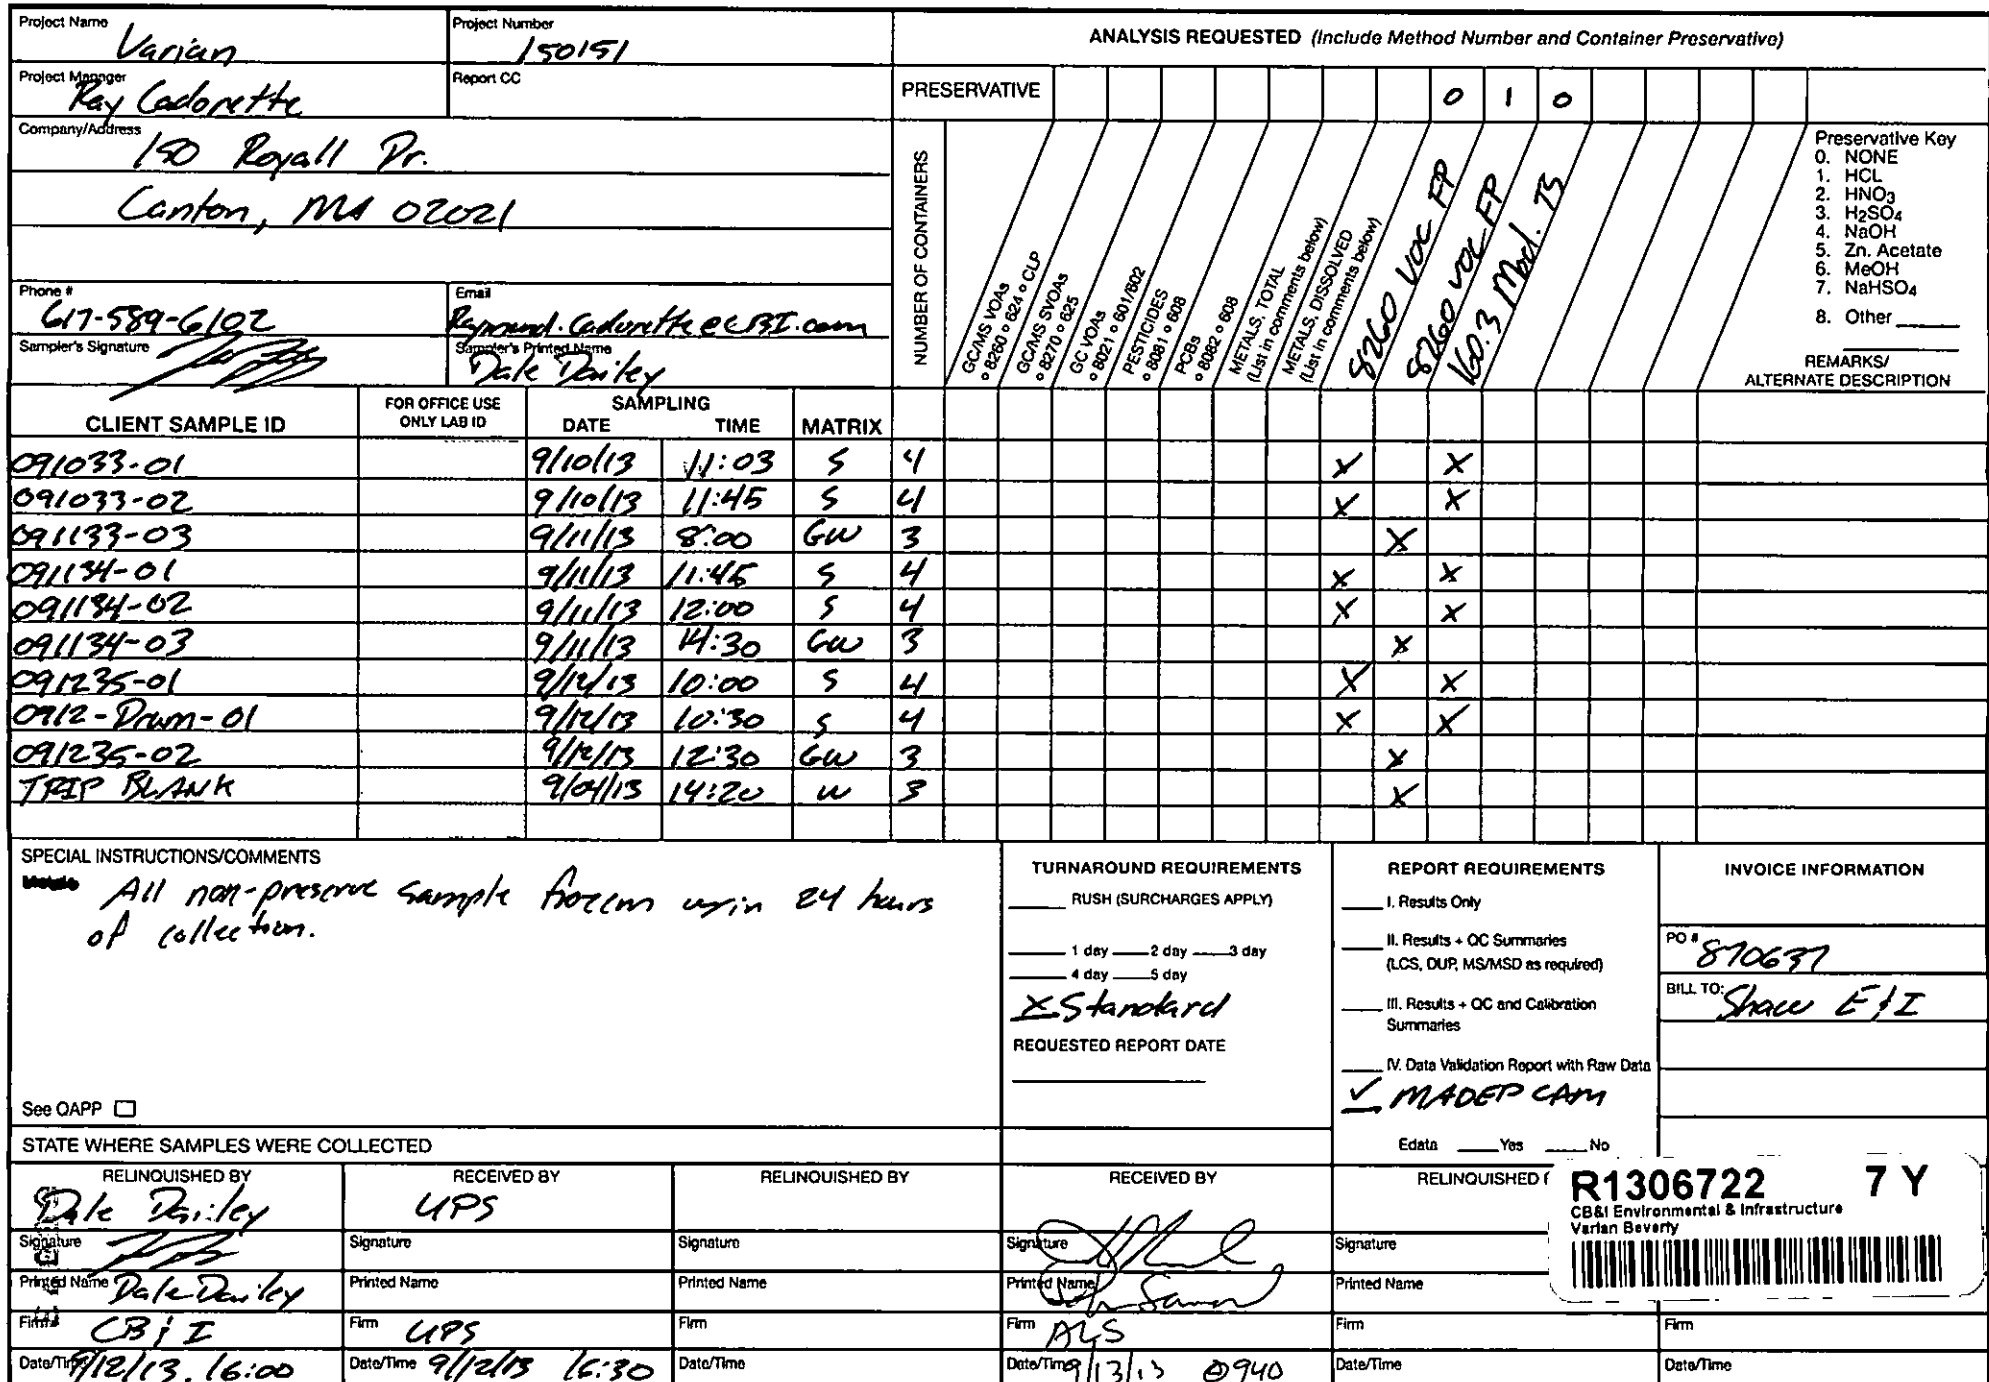 Project Name Varian Project Number 150151 ANALYSIS REQUESTED (Include Method Number and Container Preservative)
Project Manager Ray Cadorette Report CC
PRESERVATIVE 0 1 0
Company/Address 150 Royall Dr.
Canton, MA 02021
Phone # 617-589-6102 Email Raymond.Cadorette@CBI.com
Sampler's Signature Sampler's Printed Name Dale Dailey
NUMBER OF CONTAINERS
GC/MS VOAs
o 8260 o 624 o CLP
GC/MS SVOAs
o 8270 o 625
GC VOAs
o 8021 o 601/602
PESTICIDES
o 8081 o 608
PCBs
o 8082 o 608
METALS, TOTAL
(List in comments below)
METALS, DISSOLVED
(List in comments below)
8260 VOC FP
8260 VOC FP
160.3 Mod. TS
Preservative Key
0. NONE
1. HCL
2. HNO3
3. H2SO4
4. NaOH
5. Zn. Acetate
6. MeOH
7. NaHSO4
8. Other
REMARKS/
ALTERNATE DESCRIPTION
CLIENT SAMPLE ID FOR OFFICE USE ONLY LAB ID SAMPLING DATE TIME MATRIX
091033-01 9/10/13 11:03 S 4 X X
091033-02 9/10/13 11:45 S 4 X X
091133-03 9/11/13 8:00 GW 3 X
091134-01 9/11/13 11:45 S 4 X X
091134-02 9/11/13 12:00 S 4 X X
091134-03 9/11/13 14:30 GW 3 X
091235-01 9/12/13 10:00 S 4 X X
0912-Drum-01 9/12/13 10:30 S 4 X X
091235-02 9/12/13 12:30 GW 3 X
TRIP BLANK 9/04/13 14:20 W 3 X
SPECIAL INSTRUCTIONS/COMMENTS
Metals
All non-preserve sample frozen w/in 24 hours
of collection.
See QAPP
TURNAROUND REQUIREMENTS
RUSH (SURCHARGES APPLY)
1 day 2 day 3 day
4 day 5 day
X Standard
REQUESTED REPORT DATE
REPORT REQUIREMENTS
I. Results Only
II. Results + QC Summaries
(LCS, DUP, MS/MSD as required)
III. Results + QC and Calibration
Summaries
IV. Data Validation Report with Raw Data
✓ MADEP CAM
Edata Yes No
INVOICE INFORMATION
PO # 870637
BILL TO: Shaw E&I
STATE WHERE SAMPLES WERE COLLECTED
RELINQUISHED BY RECEIVED BY RELINQUISHED BY RECEIVED BY RELINQUISHED
Dale Dailey UPS
R1306722 7 Y
CB&I Environmental & Infrastructure
Varian Beverly
Signature Signature Signature Signature Signature
Printed Name Dale Dailey Printed Name Printed Name Printed Name Printed Name
Firm CB&I Firm UPS Firm Firm ALS Firm Firm
Date/Time 9/12/13, 16:00 Date/Time 9/12/13 16:30 Date/Time Date/Time 9/13/13 @940 Date/Time Date/Time